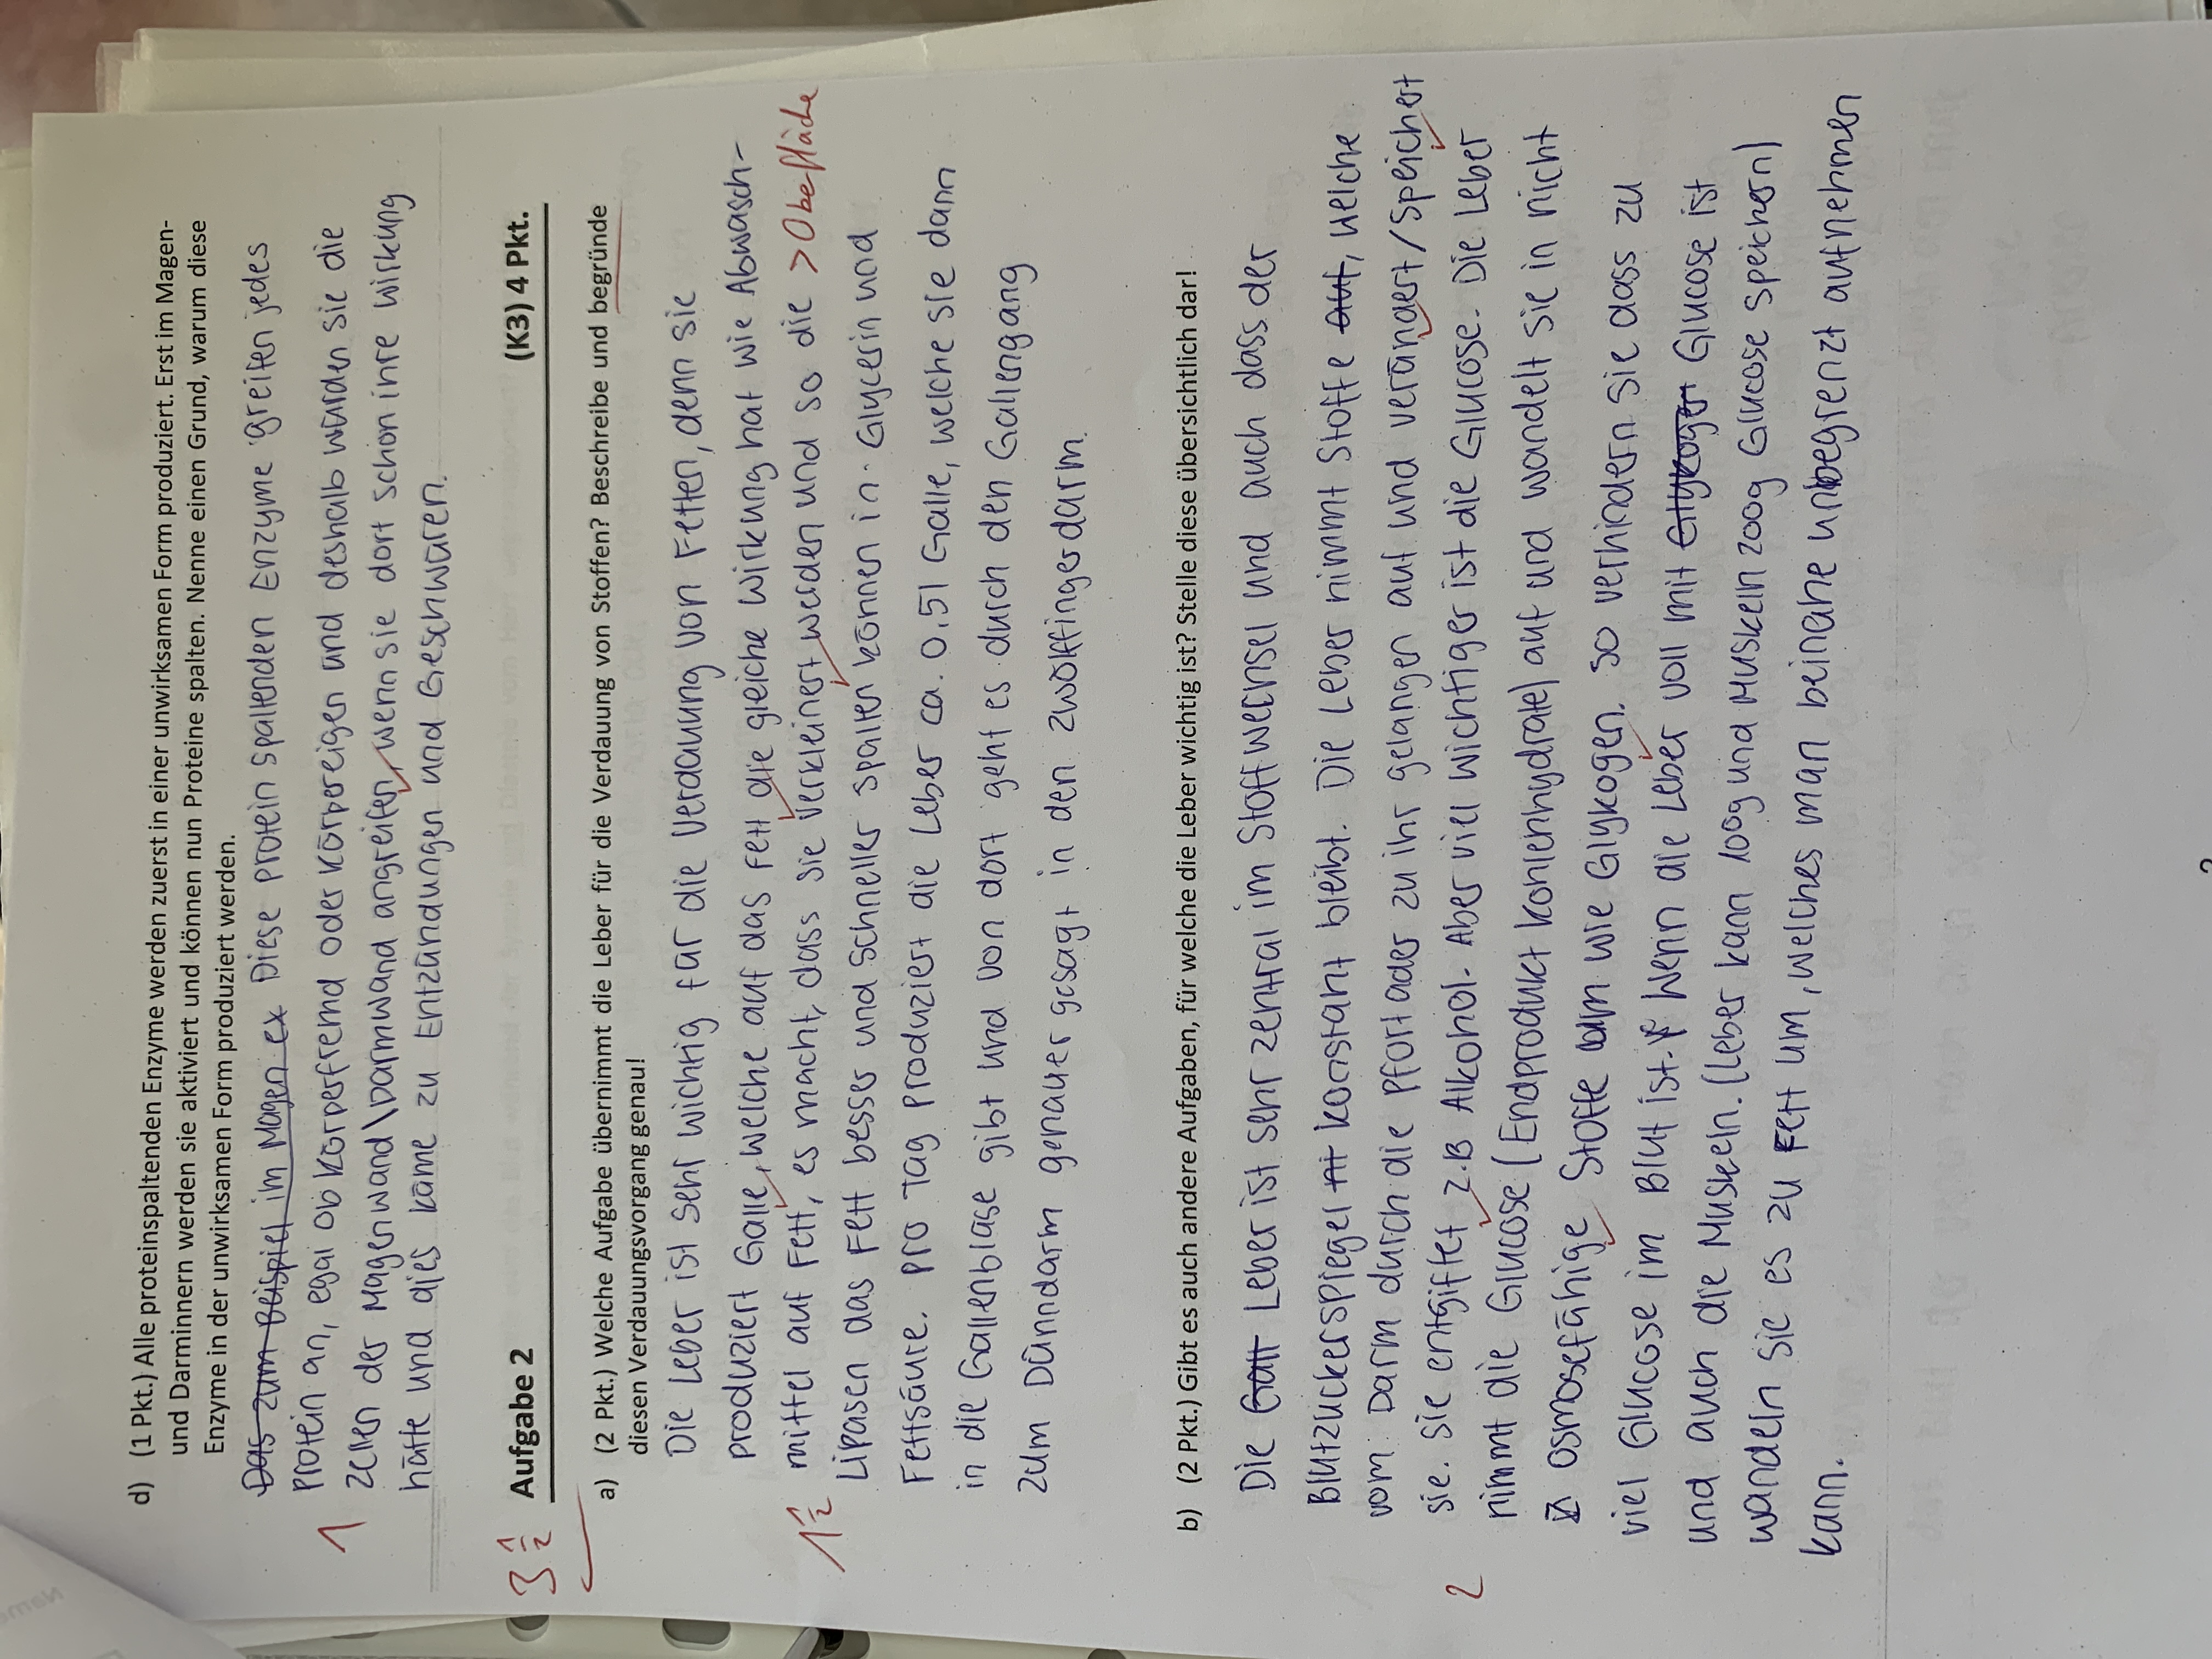 d) (1 Pkt.) Alle proteinspaltenden Enzyme werden zuerst in einer unwirksamen Form produziert. Erst im Magen-
und Darminnern werden sie aktiviert und können nun Proteine spalten. Nenne einen Grund, warum diese
Enzyme in der unwirksamen Form produziert werden.
Das zum Beispiel im Magen ex Diese Protein spaltenden Enzyme greifen jedes
Protein an, egal ob körperfremd oder körpereigen und deshalb würden sie die
1 Zellen der Magenwand\Darmwand angreifen, wenn sie dort schon ihre Wirkung
hätte und dies käme zu Entzündungen und Geschwüren.
3 1/2 Aufgabe 2 (K3) 4 Pkt.
a) (2 Pkt.) Welche Aufgabe übernimmt die Leber für die Verdauung von Stoffen? Beschreibe und begründe
diesen Verdauungsvorgang genau!
Die Leber ist sehr wichtig für die Verdauung von Fetten, denn sie
produziert Galle, welche auf das Fett die gleiche Wirkung hat wie Abwasch-
1 1/2 mittel auf Fett, es macht, dass sie verkleinert werden und so die > Oberfläche
Lipasen das Fett besser und schneller spalten können in Glycerin und
Fettsäure. Pro Tag produziert die Leber ca. 0.5l Galle, welche sie dann
in die Gallenblase gibt und von dort geht es durch den Gallengang
zum Dünndarm genauer gesagt in den Zwölffingerdarm.
b) (2 Pkt.) Gibt es auch andere Aufgaben, für welche die Leber wichtig ist? Stelle diese übersichtlich dar!
Die Gall Leber ist sehr zentral im Stoffwechsel und auch dass der
Blutzuckerspiegel konstant bleibt. Die Leber nimmt Stoffe auf, welche
vom Darm durch die Pfortader zu ihr gelangen auf und verändert/speichert
2 sie. Sie entgiftet z.B Alkohol. Aber viel wichtiger ist die Glucose. Die Leber
nimmt die Glucose (Endprodukt Kohlenhydrate) auf und wandelt sie in nicht
osmosefähige Stoffe um wie Glykogen. So verhindern sie dass zu
viel Glucose im Blut ist. Wenn die Leber voll mit Glykogen Glucose ist
und auch die Muskeln. (Leber kann 100g und Muskeln 200g Glucose speichern)
wandeln sie es zu Fett um, welches man beinahe unbegrenzt aufnehmen
kann.